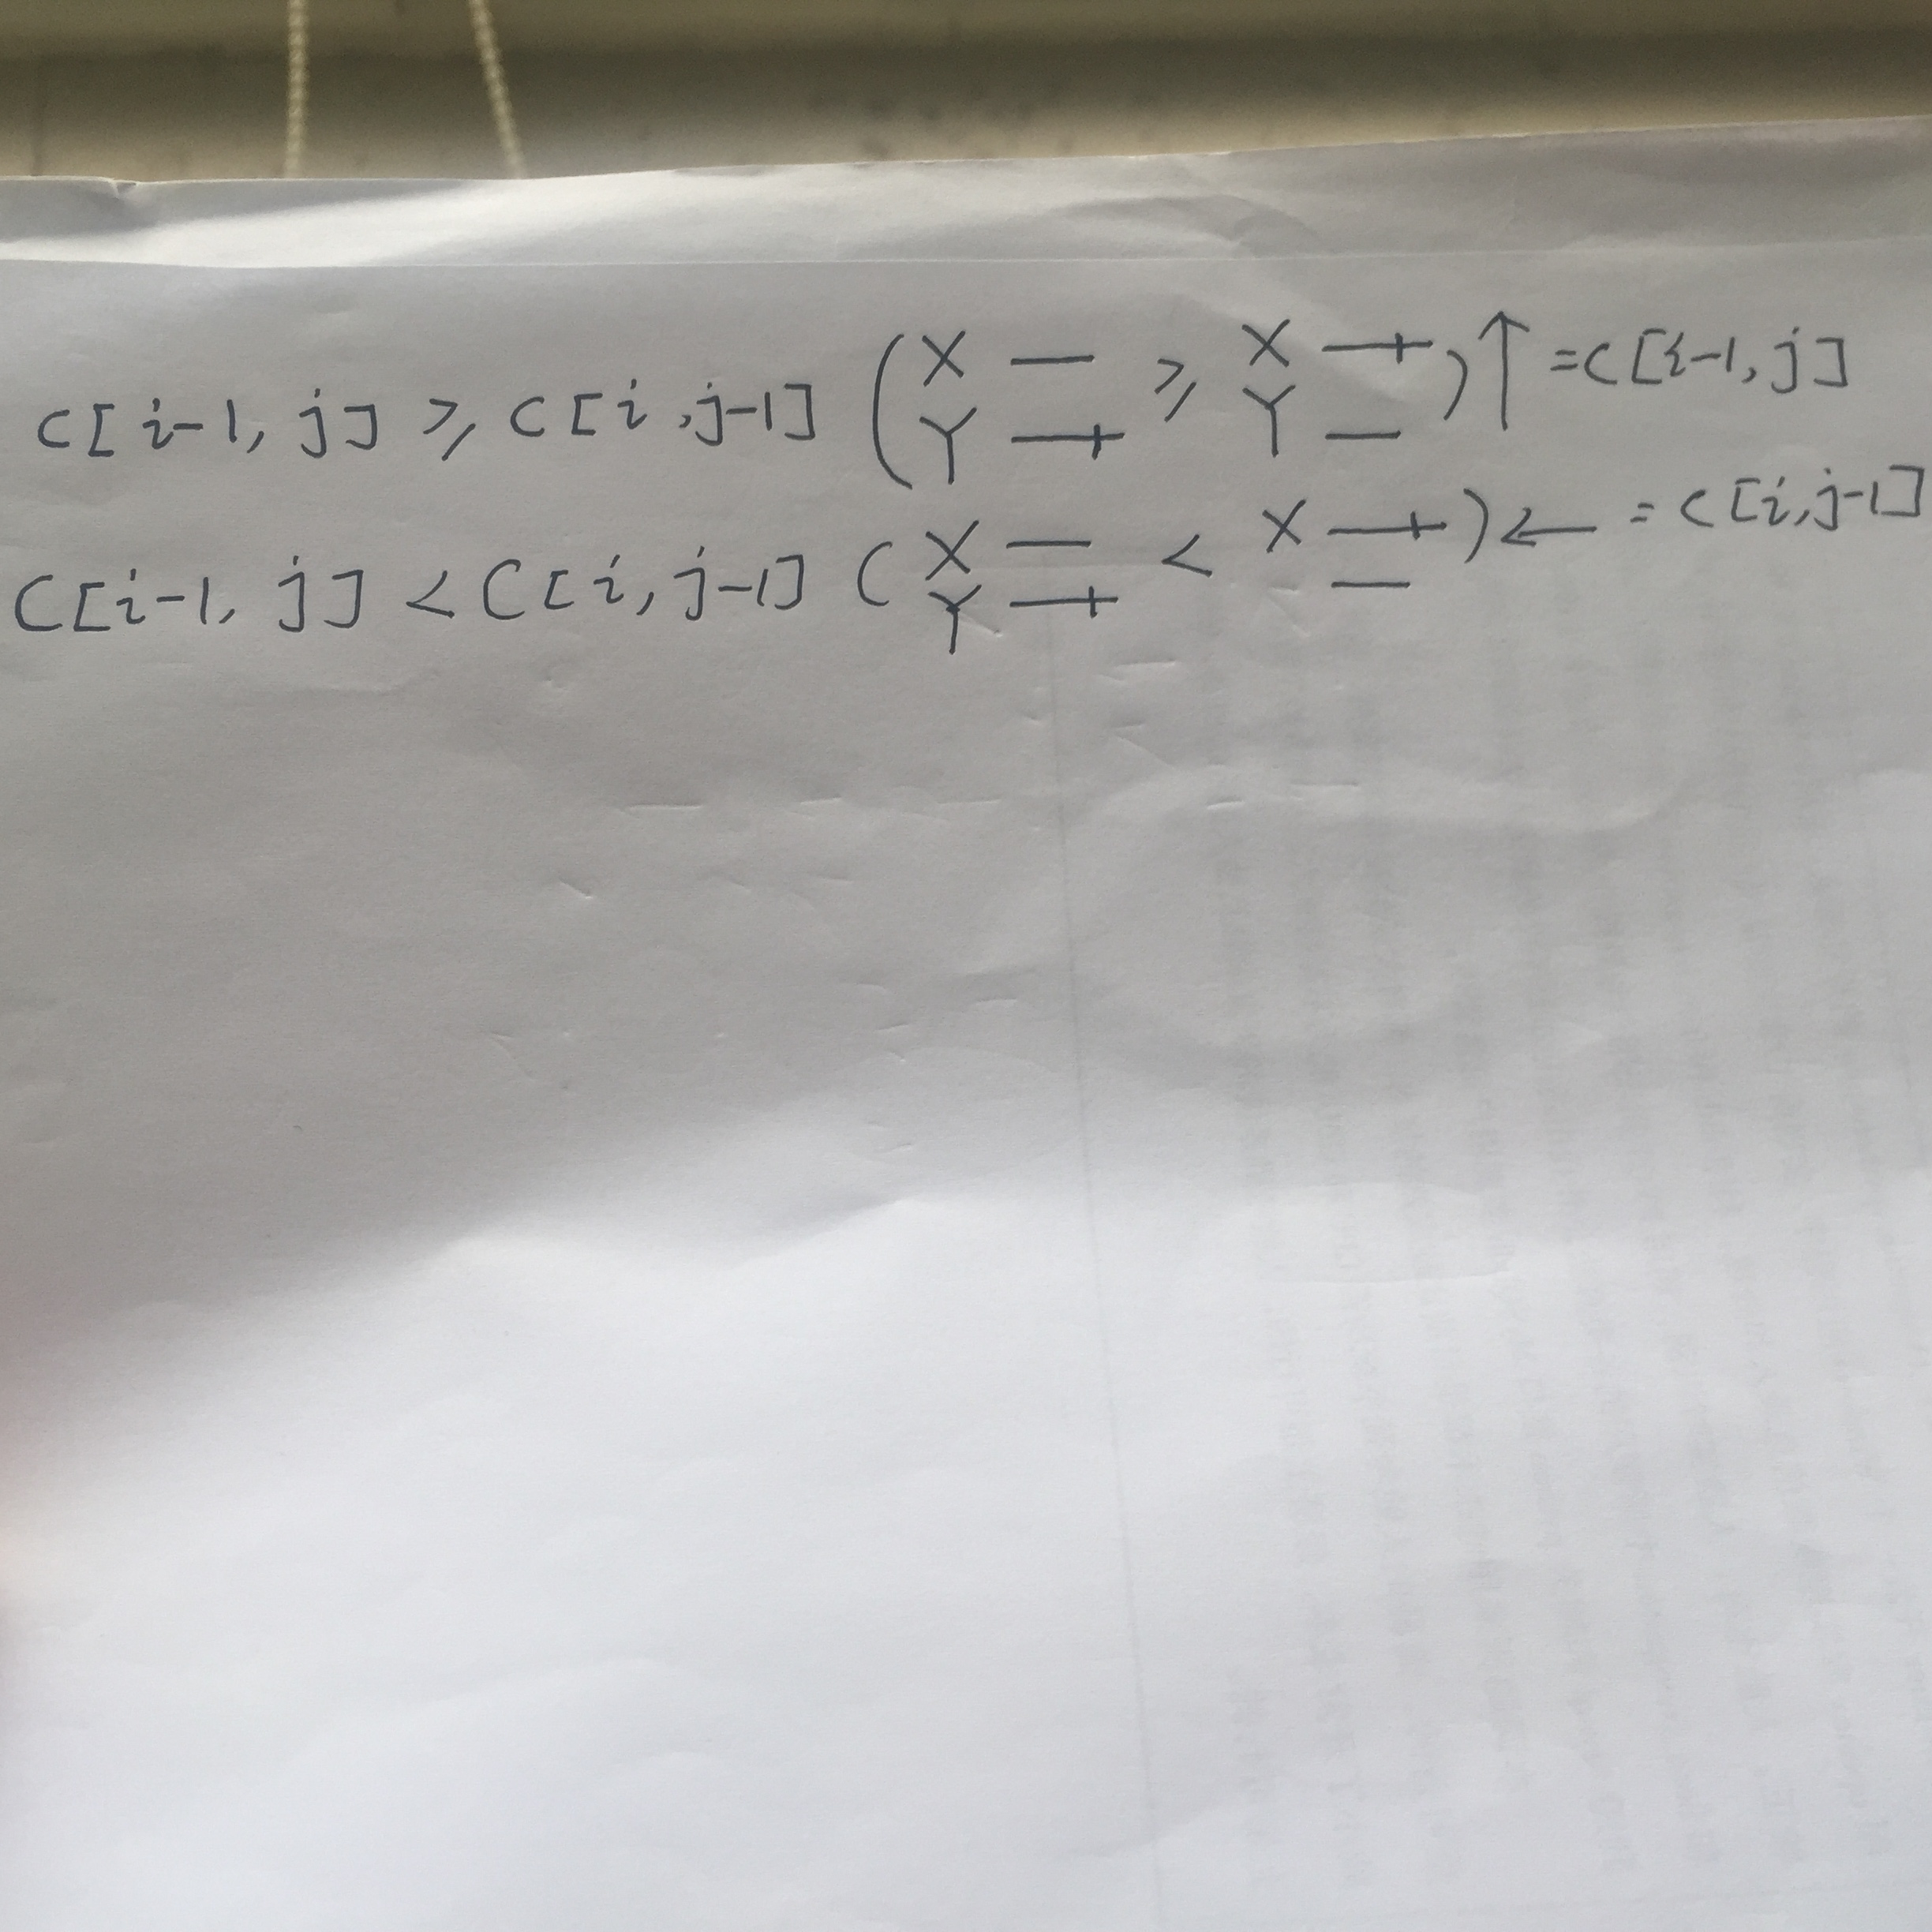 C[i-1, j] ⩾ C[i, j-1] (X — ⩾ X —+) ↑ = C[i-1, j]
Y —+ Y —
C[i-1, j] < C[i, j-1] (X — < X —+) ← = C[i, j-1]
Y —+ —